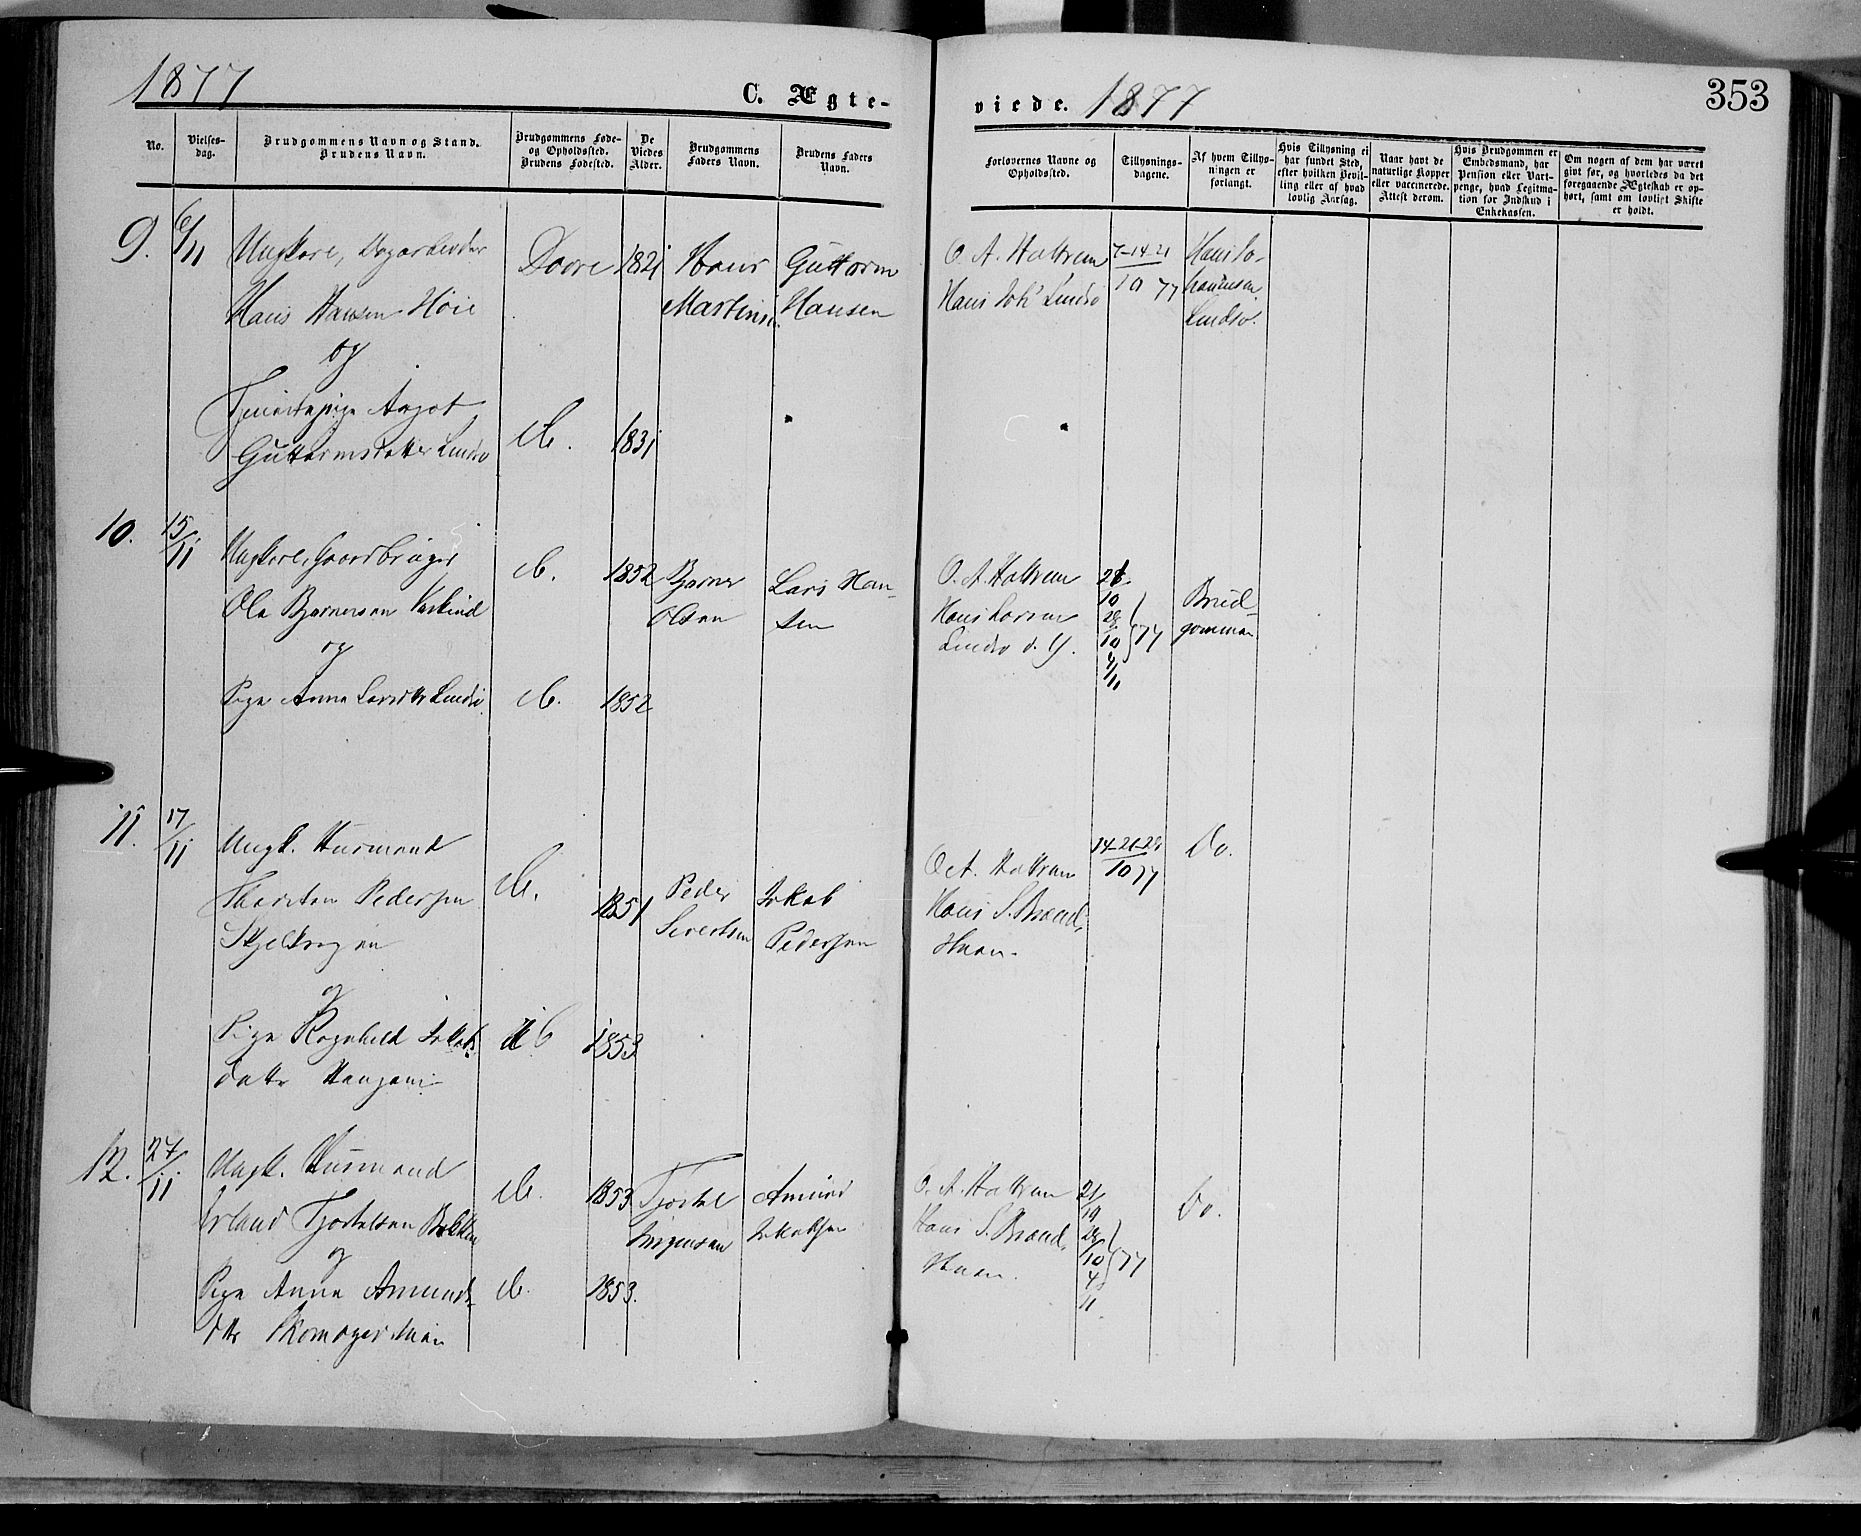 1877
C. Ægte-
viede.
1877
353
No.
Vielses-
dag.
Brudgommens Navn og Stand.
Brudens Navn.
Brudgommens Føde-
og Opholdssted.
Brudens Fødested.
De
Viedes
Alder.
Brudgommens
Faders Navn.
Brudens Faders
Navn.
Forlovernes Navne og
Opholdssted.
Tillysnings-
dagene.
Af hvem Tillys-
ningen er
forlangt.
Hvis Tillysning ei
har fundet Sted,
efter hvilken Bevil-
ling eller af hvad
lovlig Aarsag.
Naar havt de
naturlige Kopper
eller vaccinerede.
Attest derom.
Hvis Brudgommen er
Embedsmand, har
Pension eller Vart-
penge, hvad Legitma-
tion for Indskud i
Enkekassen.
Om nogen af dem har været
givt før, og hvorledes da det
foregaaende Ægteskab er op-
hørt, samt om lovligt Skifte
er holdt.
9.
6/11
Ungkarl, Dagarbeider
Hans Hansen Høie
og
Tjenestepige Aagot
Guttormsdatter Lindsø
Dovre
1821
Hans
Martins.
Guttorm
Hansen
O. A. Hattrem
Hans Joh' Lindsø
7-14-21
10 77
Hans Jo-
hannesen
Lindsø.
do.
1831
10.
15/11
Ungkarl, Gaardbruger
Ola Bjørnersen
og
Pige Anna Larsdtr Lindsø
do.
1852
Bjørner
Olsen
Lars Han-
sen
O. A. Hattrem
Hans Larsen
Lindsø d. Y.
21
10
28
10
4/11
77
Brud-
gommen
do.
1852
11.
17/11
Ungk. Husmand
Thorsten Pedersen
Skjelkrogen
og
Pige Ragnhild Jakobs-
datter Haugen
do.
1851
Peder
Sivertsen
Jakob
Pedersen
O. A. Hattrem
Hans S. Brænd-
Huen.
14-21-28
10 77
Do.
do
1853
12.
27/11
Ungk. Husmand
Erland Tjostelsen Bakken
og
Pige Anna Amunds-
dtr
do.
1853
Tjostel
Jørgensen
Amund
Jakobsen
O. A. Hattrem
Hans S. Brænd-
Huen.
21/
10
28
/10
4
11
77
Do.
do.
1853.